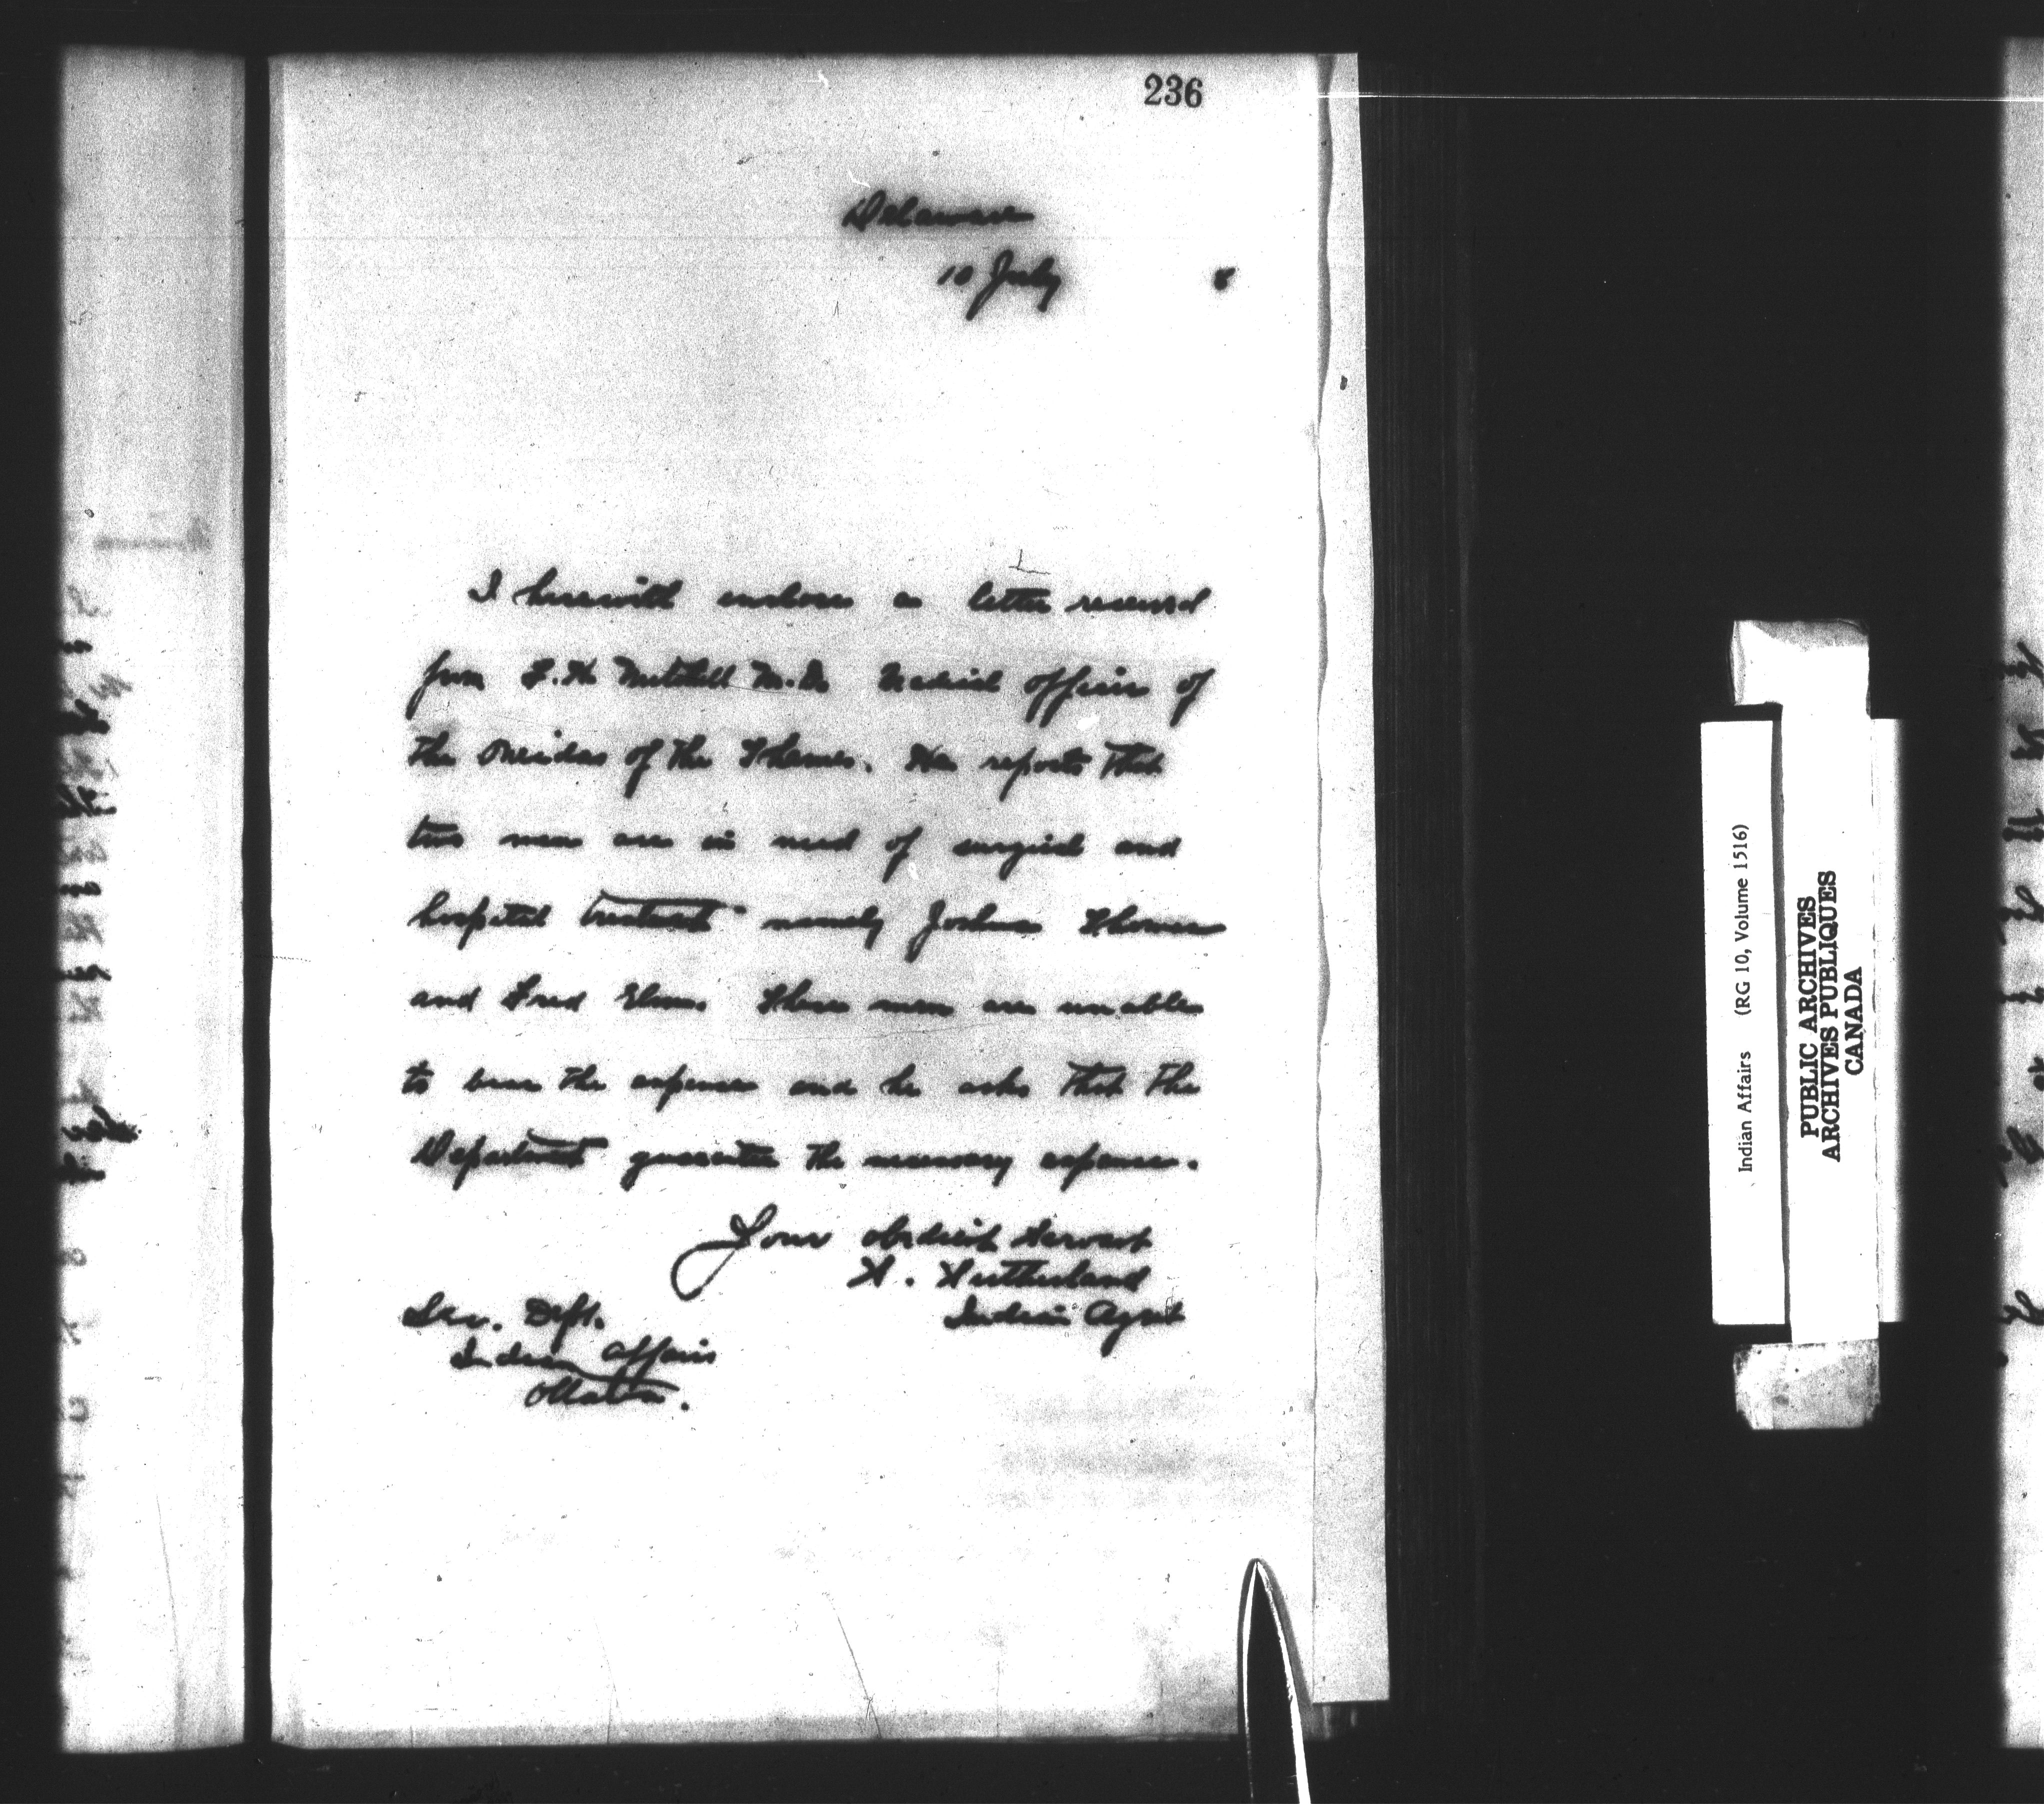 236
Delaware
10 July 8
I herewith enclose a letter received
from F. H. Mitchell M.D. Medical officer of
the Oneidas of the Thames. He reports that
two men are in need of surgical and
hospital treatment namely Joshua Thomas
and Fred Elm. These men are unable
to bear the expense and he asks that the
Department guarantee the necessary expenses.
Your obedient servant
S. Sutherland
Indian Agent
Sec. Dept.
Indian Affairs
Ottawa.
Indian Affairs (RG 10, Volume 1516)
PUBLIC ARCHIVES
ARCHIVES PUBLIQUES
CANADA